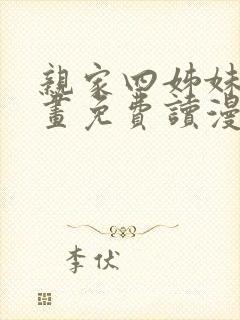 親家四姊妹
畫免費讀漫
李伏